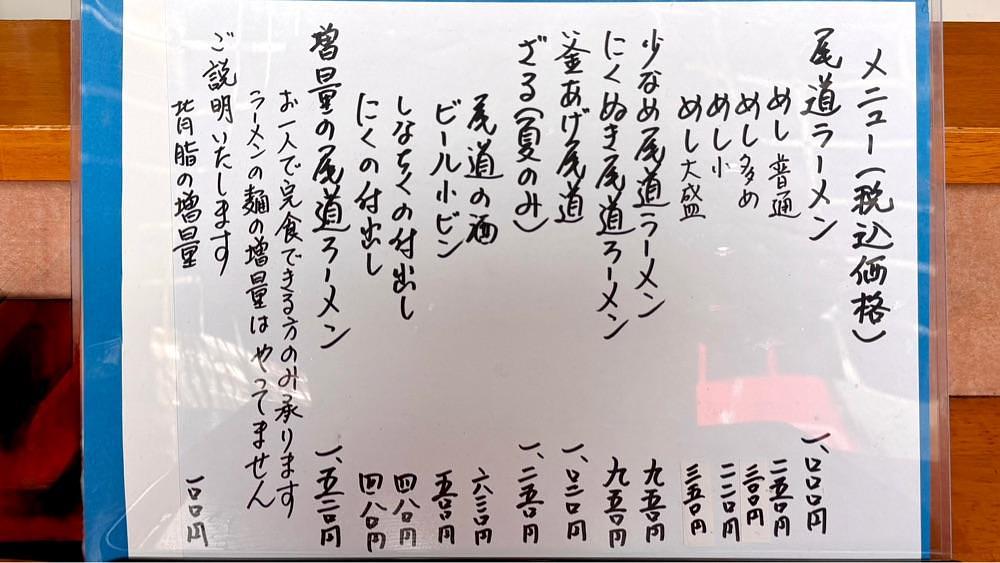 メニュー(税込価格)
尾道ラーメン 一、〇〇〇円
めし 普通 二五〇円
めし多め 三〇〇円
めし小 二二〇円
めし大盛 三五〇円
少なめ尾道ラーメン 九五〇円
にくぬき尾道ラーメン 九五〇円
釜あげ尾道 一、〇二〇円
ざる(夏のみ) 一、二五〇円
尾道の酒 六三〇円
ビール小ビン 五〇〇円
しなちくの付出し 四八〇円
にくの付出し 四八〇円
増量の尾道ラーメン 一、五二〇円
お一人で完食できる方のみ承ります
ラーメンの麺の増量はやってません
ご説明いたします
背脂の増量 一〇〇円